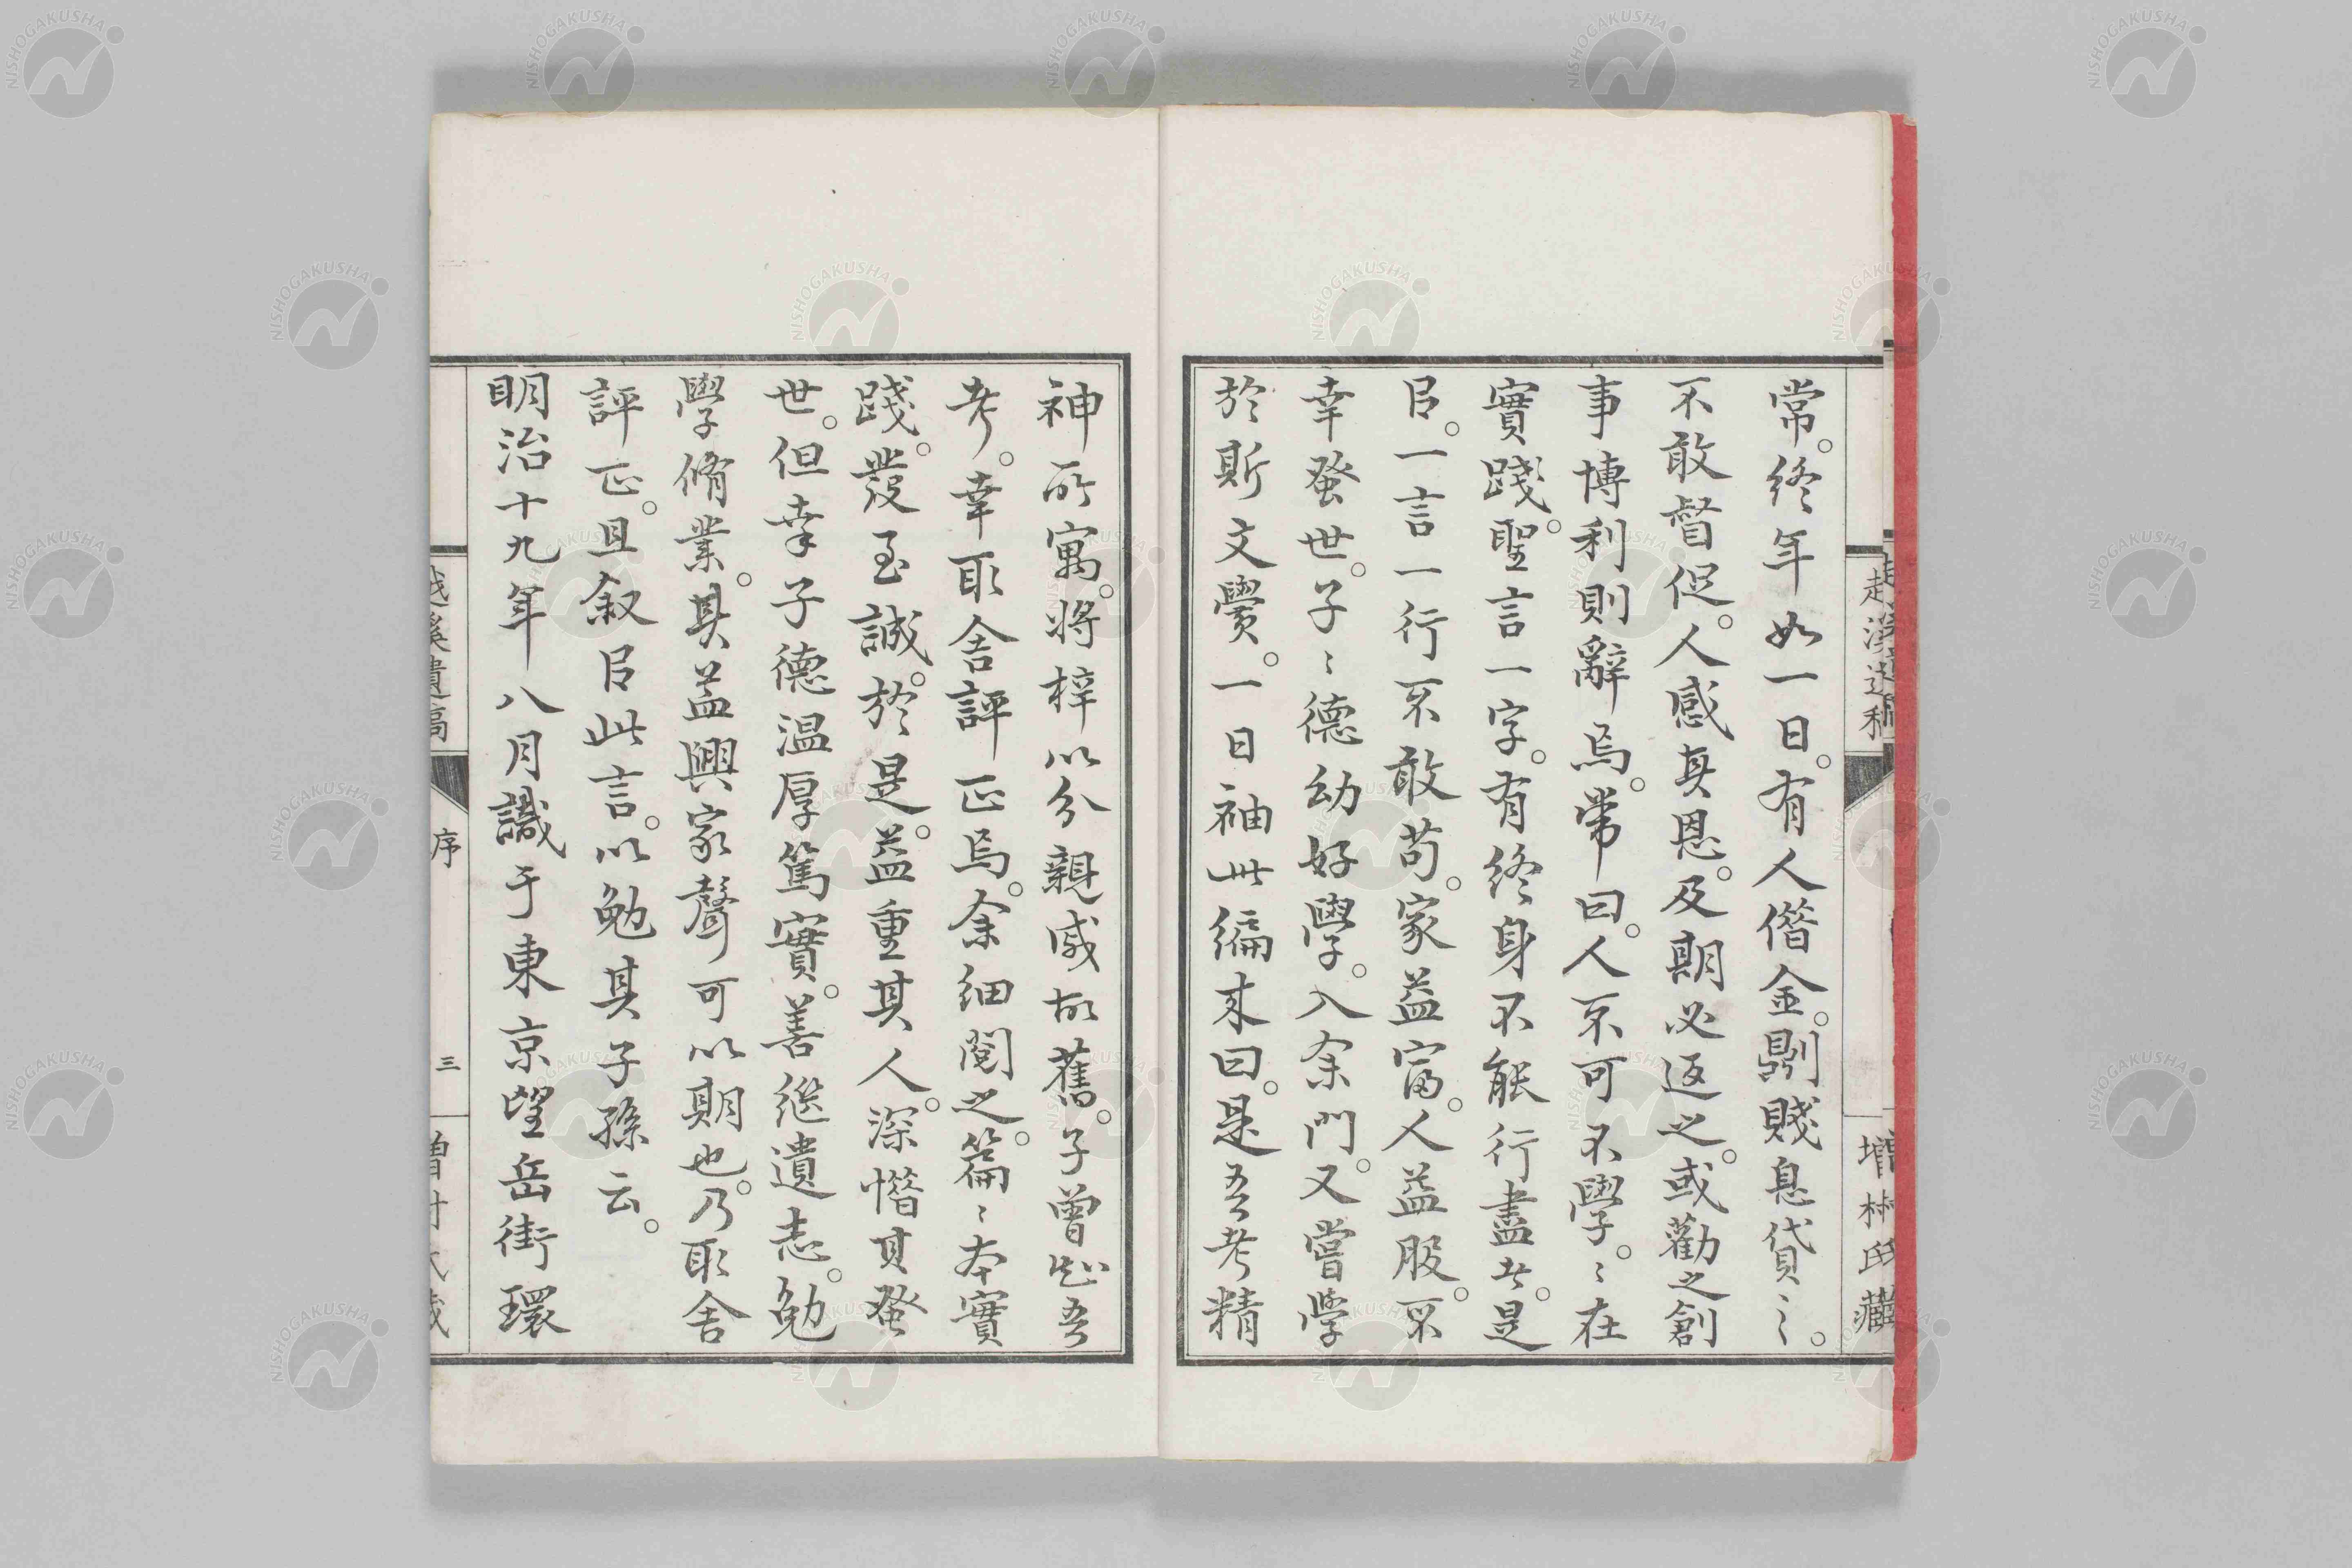 常。終年如一日。有人僭金。劘賤息貸〻。
不敢督促。人感其恩。及期必返之。或勸之創
事博利則辭焉。常曰。人不可不學。〻在
實踐。聖言一字。有終身不能行盡者。是
㠯。一言一行不敢苟。家益富。人益服。不
幸蚤世。子〻德幼好學。入余門。又嘗學
於斯文黌。一日袖此編来曰。是吾考精
神所寓。將梓以分親戚故舊。子曾知吾
考。幸取舍評正焉。余細閲之。篇〻本實
踐。發至誠。於是。益重其人。深憯其蚤
世。但幸子德温厚篤實。善継遺志。勉
學脩業。其益興家聲可以期也。乃取舍
評正。且敘㠯此言。以勉其子孫云。
明治十九年八月識于東京望岳街環
越溪遺稿
序
三
増村氏藏